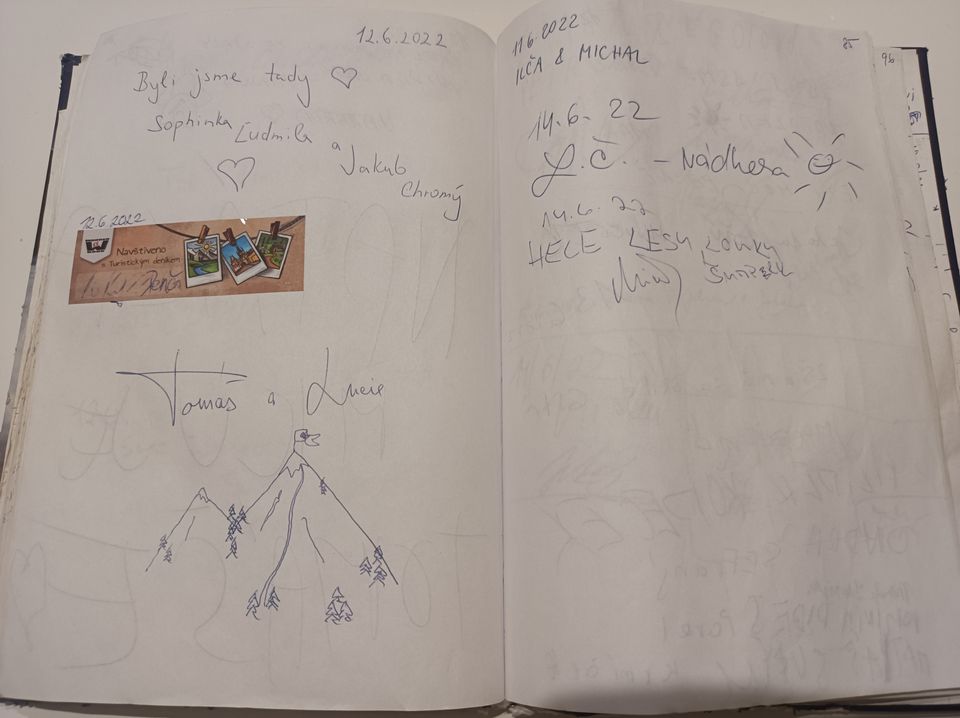 12.6.2022
Byli jsme tady
Sophinka Ludmila a Jakub Chromý
12.6.2022
Navštíveno
s Turistickým deníkem
Tomáš a Lucie
11.6.2022
ILČA & MICHAL
14.6.22
L.Č. – Nádhera
14.6.22
HELE LESY LOUKY
85
96